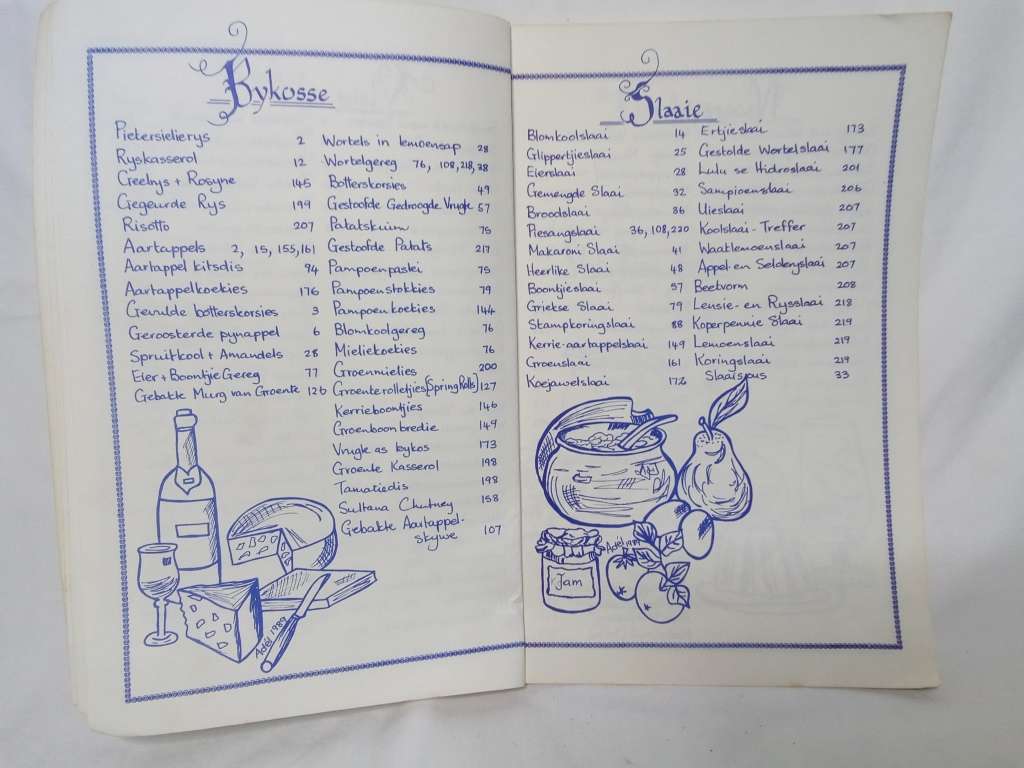 Bykosse
Pietersielierys 2
Ryskasserol 12
Geelrys + Rosyne 145
Gegeurde Rys 199
Risotto 207
Aartappels 2, 15, 155, 161
Aartappel kitsdis 94
Aartappelkoekies 176
Gevulde botterskorsies 3
Geroosterde pynappel 6
Spruitkool + Amandels 28
Eier + Boontjie Gereg 77
Gebakte Murg van Groente 126
Wortels in lemoensap 28
Wortelgereg 76, 108, 218, 38
Botterskorsies 49
Gestoofde Gedroogde Vrugte 57
Patatskuim 75
Gestoofde Patats 217
Pampoenpastei 75
Pampoenstokkies 79
Pampoenkoekies 144
Blomkoolgereg 76
Mieliekoekies 76
Groenmielies 200
Groenterolletjies [Spring Rolls] 127
Kerrieboontjies 146
Groenboonbredie 149
Vrugte as bykos 173
Groente Kasserol 198
Tamatiedis 198
Sultana Chutney 158
Gebakte Aartappel-
skywe 107
Adél 1989
Slaaie
Blomkoolslaai 14
Glippertjieslaai 25
Eierslaai 28
Gemengde Slaai 32
Broodslaai 36
Piesangslaai 36, 108, 220
Makaroni Slaai 41
Heerlike Slaai 48
Boontjieslaai 57
Griekse Slaai 79
Stampkoringslaai 88
Kerrie-aartappelslaai 149
Groenslaai 161
Koejawelslaai 172
Ertjieslaai 173
Gestolde Wortelslaai 177
Lulu se Hidroslaai 201
Sampioenslaai 206
Uieslaai 207
Koolslaai-Treffer 207
Waatlemoenslaai 207
Appel-en Selderyslaai 207
Beetvorm 208
Lensie-en Rysslaai 218
Koperpennie Slaai 219
Lemoenslaai 219
Koringslaai 219
Slaaisous 33
Jam
Adél 1989